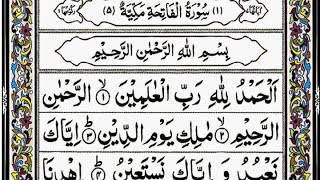 اٰیَاتُهَا ٧ (١) سُوْرَةُ الْفَاتِحَةِ مَكِّیَّةٌ (٥) رُكُوْعُهَا ١
بِسْمِ اللّٰهِ الرَّحْمٰنِ الرَّحِیْمِ
اَلْحَمْدُ لِلّٰهِ رَبِّ الْعٰلَمِیْنَ ﴿١﴾ الرَّحْمٰنِ
الرَّحِیْمِ ﴿٢﴾ مٰلِكِ یَوْمِ الدِّیْنِ ﴿٣﴾ اِیَّاكَ
نَعْبُدُ وَ اِیَّاكَ نَسْتَعِیْنُ ﴿٤﴾ اِهْدِنَا